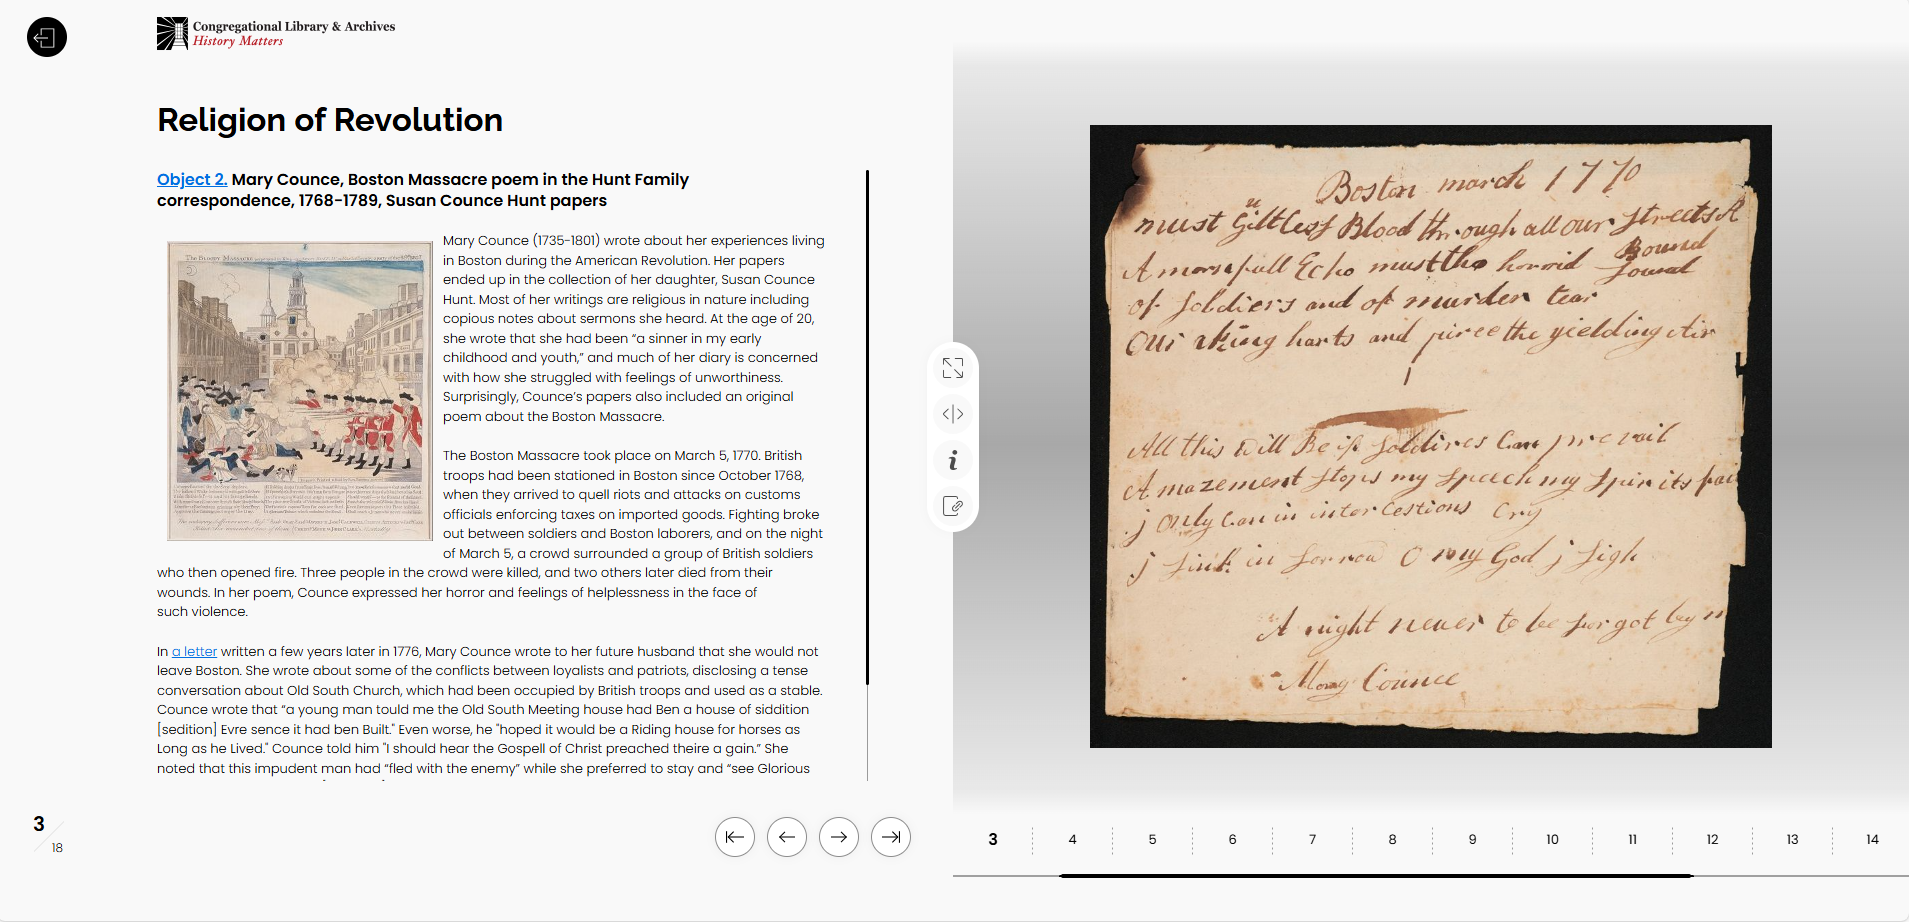 Congregational Library & Archives
History Matters
Religion of Revolution
Object 2. Mary Counce, Boston Massacre poem in the Hunt Family
correspondence, 1768-1789, Susan Counce Hunt papers
The Bloody Massacre
Mary Counce (1735-1801) wrote about her experiences living
in Boston during the American Revolution. Her papers
ended up in the collection of her daughter, Susan Counce
Hunt. Most of her writings are religious in nature including
copious notes about sermons she heard. At the age of 20,
she wrote that she had been “a sinner in my early
childhood and youth,” and much of her diary is concerned
with how she struggled with feelings of unworthiness.
Surprisingly, Counce’s papers also included an original
poem about the Boston Massacre.
The Boston Massacre took place on March 5, 1770. British
troops had been stationed in Boston since October 1768,
when they arrived to quell riots and attacks on customs
officials enforcing taxes on imported goods. Fighting broke
out between soldiers and Boston laborers, and on the night
of March 5, a crowd surrounded a group of British soldiers
who then opened fire. Three people in the crowd were killed, and two others later died from their
wounds. In her poem, Counce expressed her horror and feelings of helplessness in the face of
such violence.
In a letter written a few years later in 1776, Mary Counce wrote to her future husband that she would not
leave Boston. She wrote about some of the conflicts between loyalists and patriots, disclosing a tense
conversation about Old South Church, which had been occupied by British troops and used as a stable.
Counce wrote that “a young man tould me the Old South Meeting house had Ben a house of siddition
[sedition] Evre sence it had ben Built." Even worse, he "hoped it would be a Riding house for horses as
Long as he Lived." Counce told him "I should hear the Gospell of Christ preached theire a gain.” She
noted that this impudent man had “fled with the enemy” while she preferred to stay and “see Glorious
3
18
Boston march 1770
must Giltless Blood through all our streets
Bound
Echo must the horrid sound
of soldiers and of murder tear
Our harts and pirce the yielding Air
All this will Be if soldires Can prevail
Amazement stops my speech my spirits
j only Can in intercestions Cry
j sink in sorrow O my God j sigh
A night never to be forgot by
Mary Counce
3 4 5 6 7 8 9 10 11 12 13 14